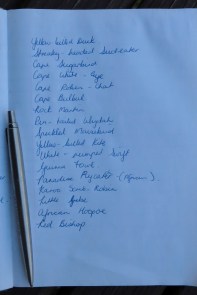 Yellow billed Duck
Streaky-headed Seedeater
Cape Sugarbird
Cape White-Eye
Cape Robin-Chat
Cape Bulbul
Rock Martin
Pin-tailed Whydah
Speckled Mousebird
Yellow-billed Kite
White-rumped Swift
Guinea Fowl
Paradise Flycatcher (African)
Karoo Scrub-Robin
Little
African Hoopoe
Red Bishop